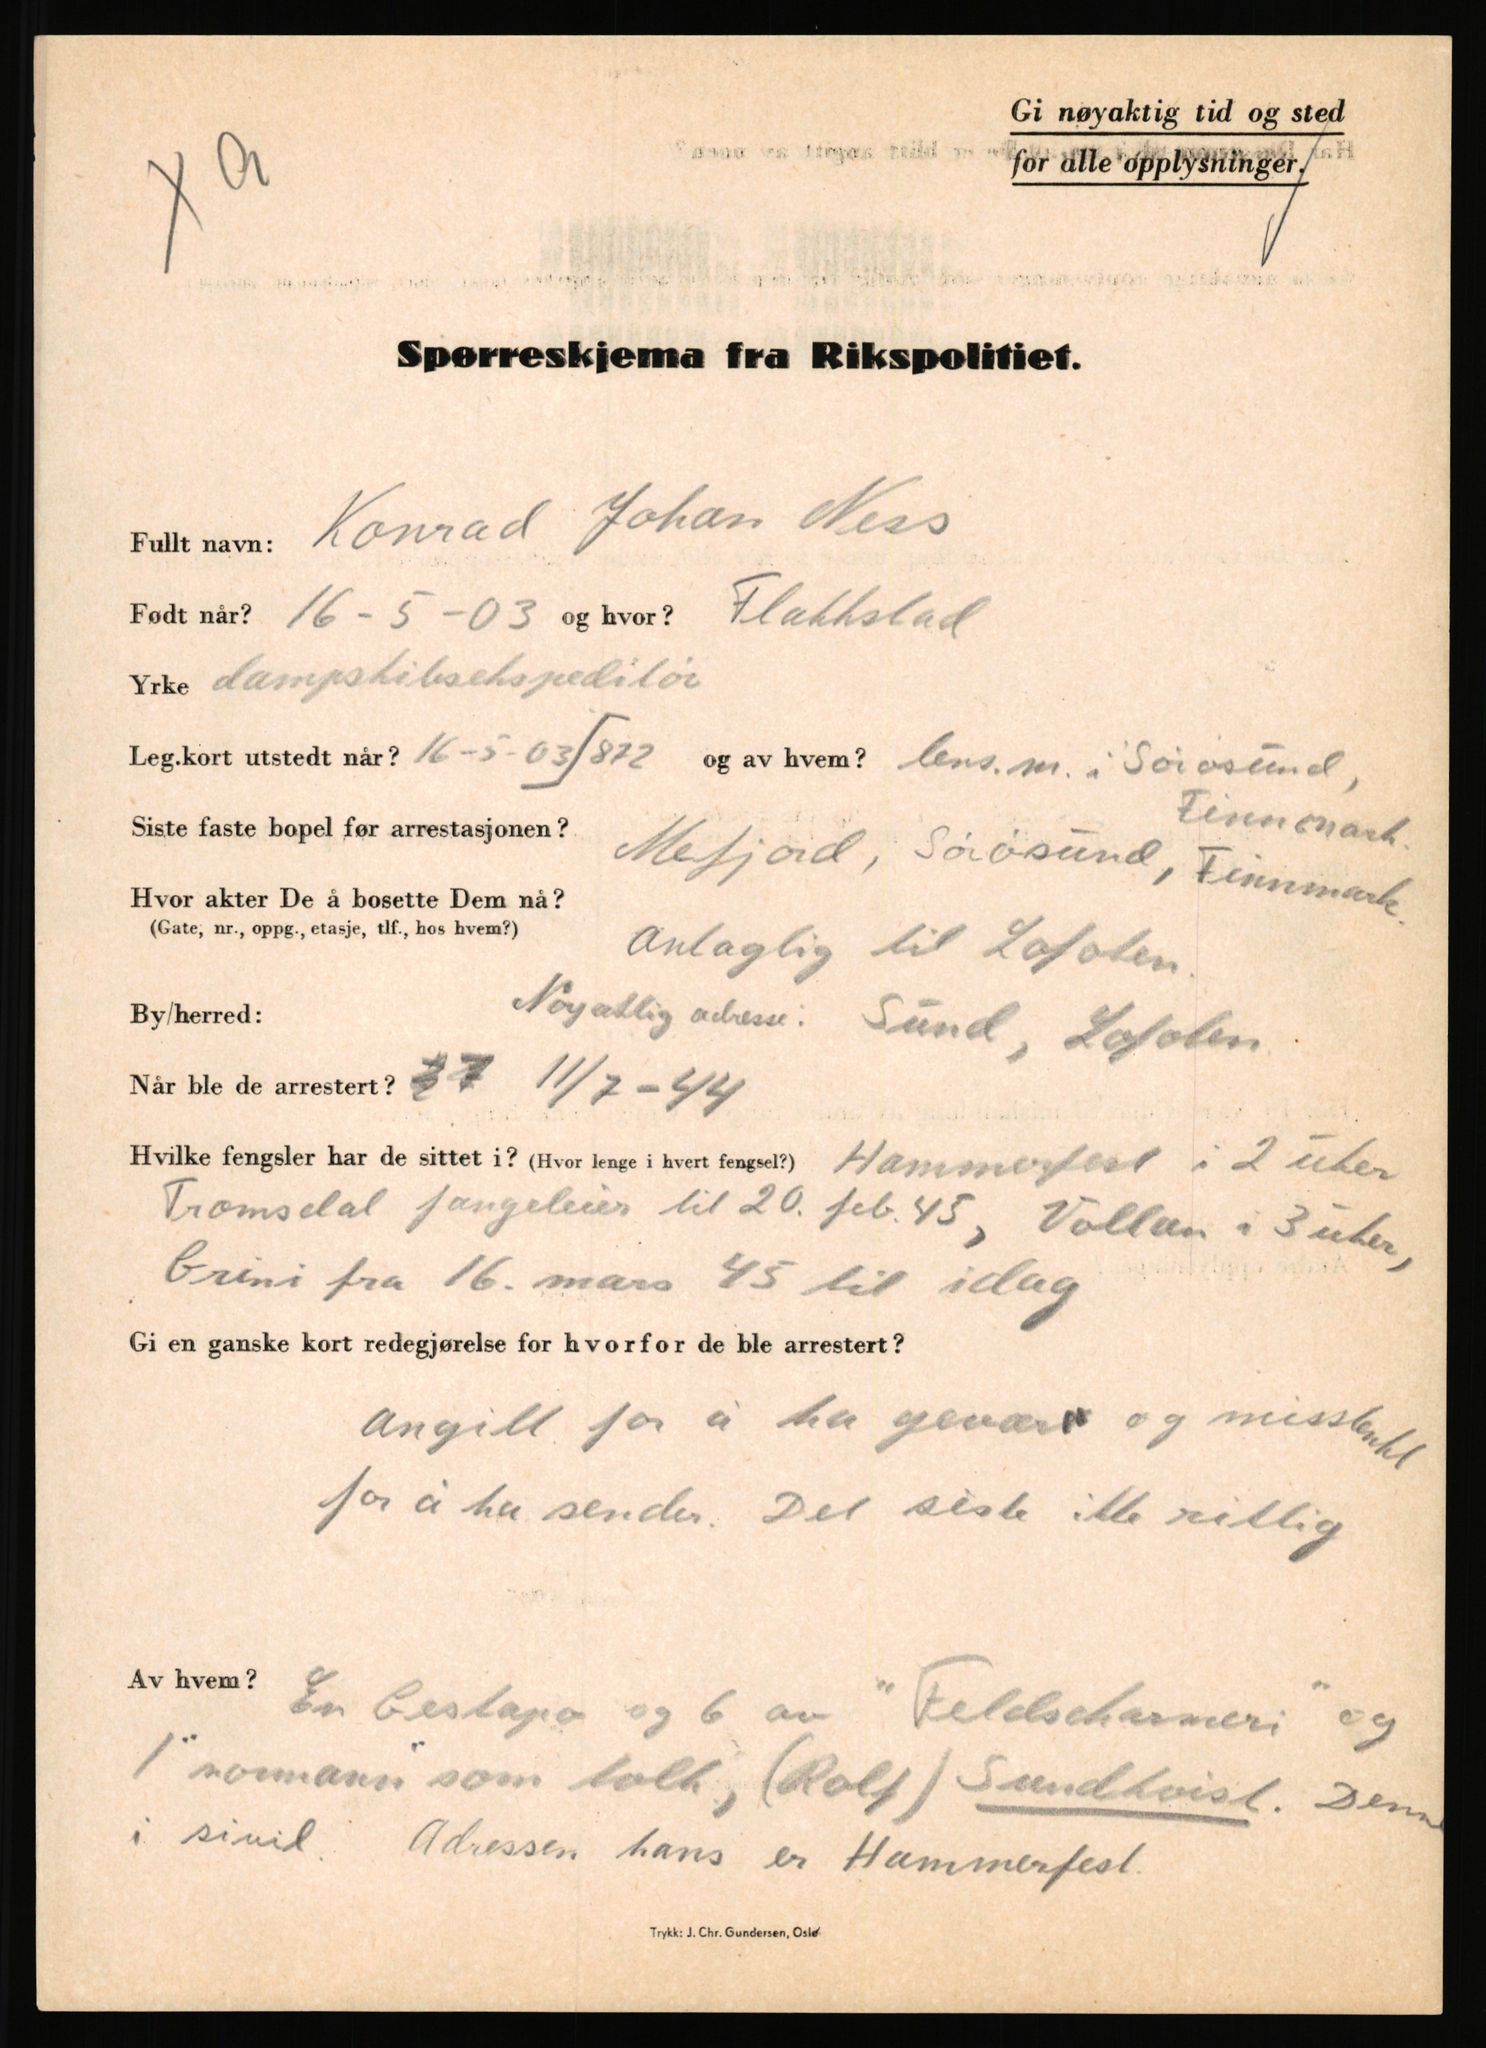 Gi nøyaktig tid og sted
for alle opplysninger.
X a
Spørreskjema fra Rikspolitiet.
Fullt navn: Konrad Johan Ness
Født når? 16-5-03 og hvor? Flakkstad
Yrke dampskibsekspeditör
Leg.kort utstedt når? 16-5-03/872 og av hvem? lens.m. i Sörösund,
Finnmark.
Siste faste bopel før arrestasjonen? Mefjord, Sörösund, Finnmark.
Hvor akter De å bosette Dem nå?
(Gate, nr., oppg., etasje, tlf., hos hvem?) Antaglig til Lofoten.
By/herred: Nöyaktig adresse: Sund, Lofoten
Når ble de arrestert? 11/7-44
Hvilke fengsler har de sittet i? (Hvor lenge i hvert fengsel?) Hammerfest i 2 uker
Tromsdal fangeleier til 20. feb. 45, Vollan i 3 uker,
Grini fra 16. mars 45 til idag
Gi en ganske kort redegjørelse for hvorfor de ble arrestert?
Angitt for å ha gevær og misstenkt
for å ha sender. Det siste ikke riktig
Av hvem? En Gestapo og 6 av "Feldscharmeri" og
1 "normann" som tolk, (Rolf) Sundkvist. Denne
i sivil. Adressen hans er Hammerfest.
Trykk: J. Chr. Gundersen, Oslo